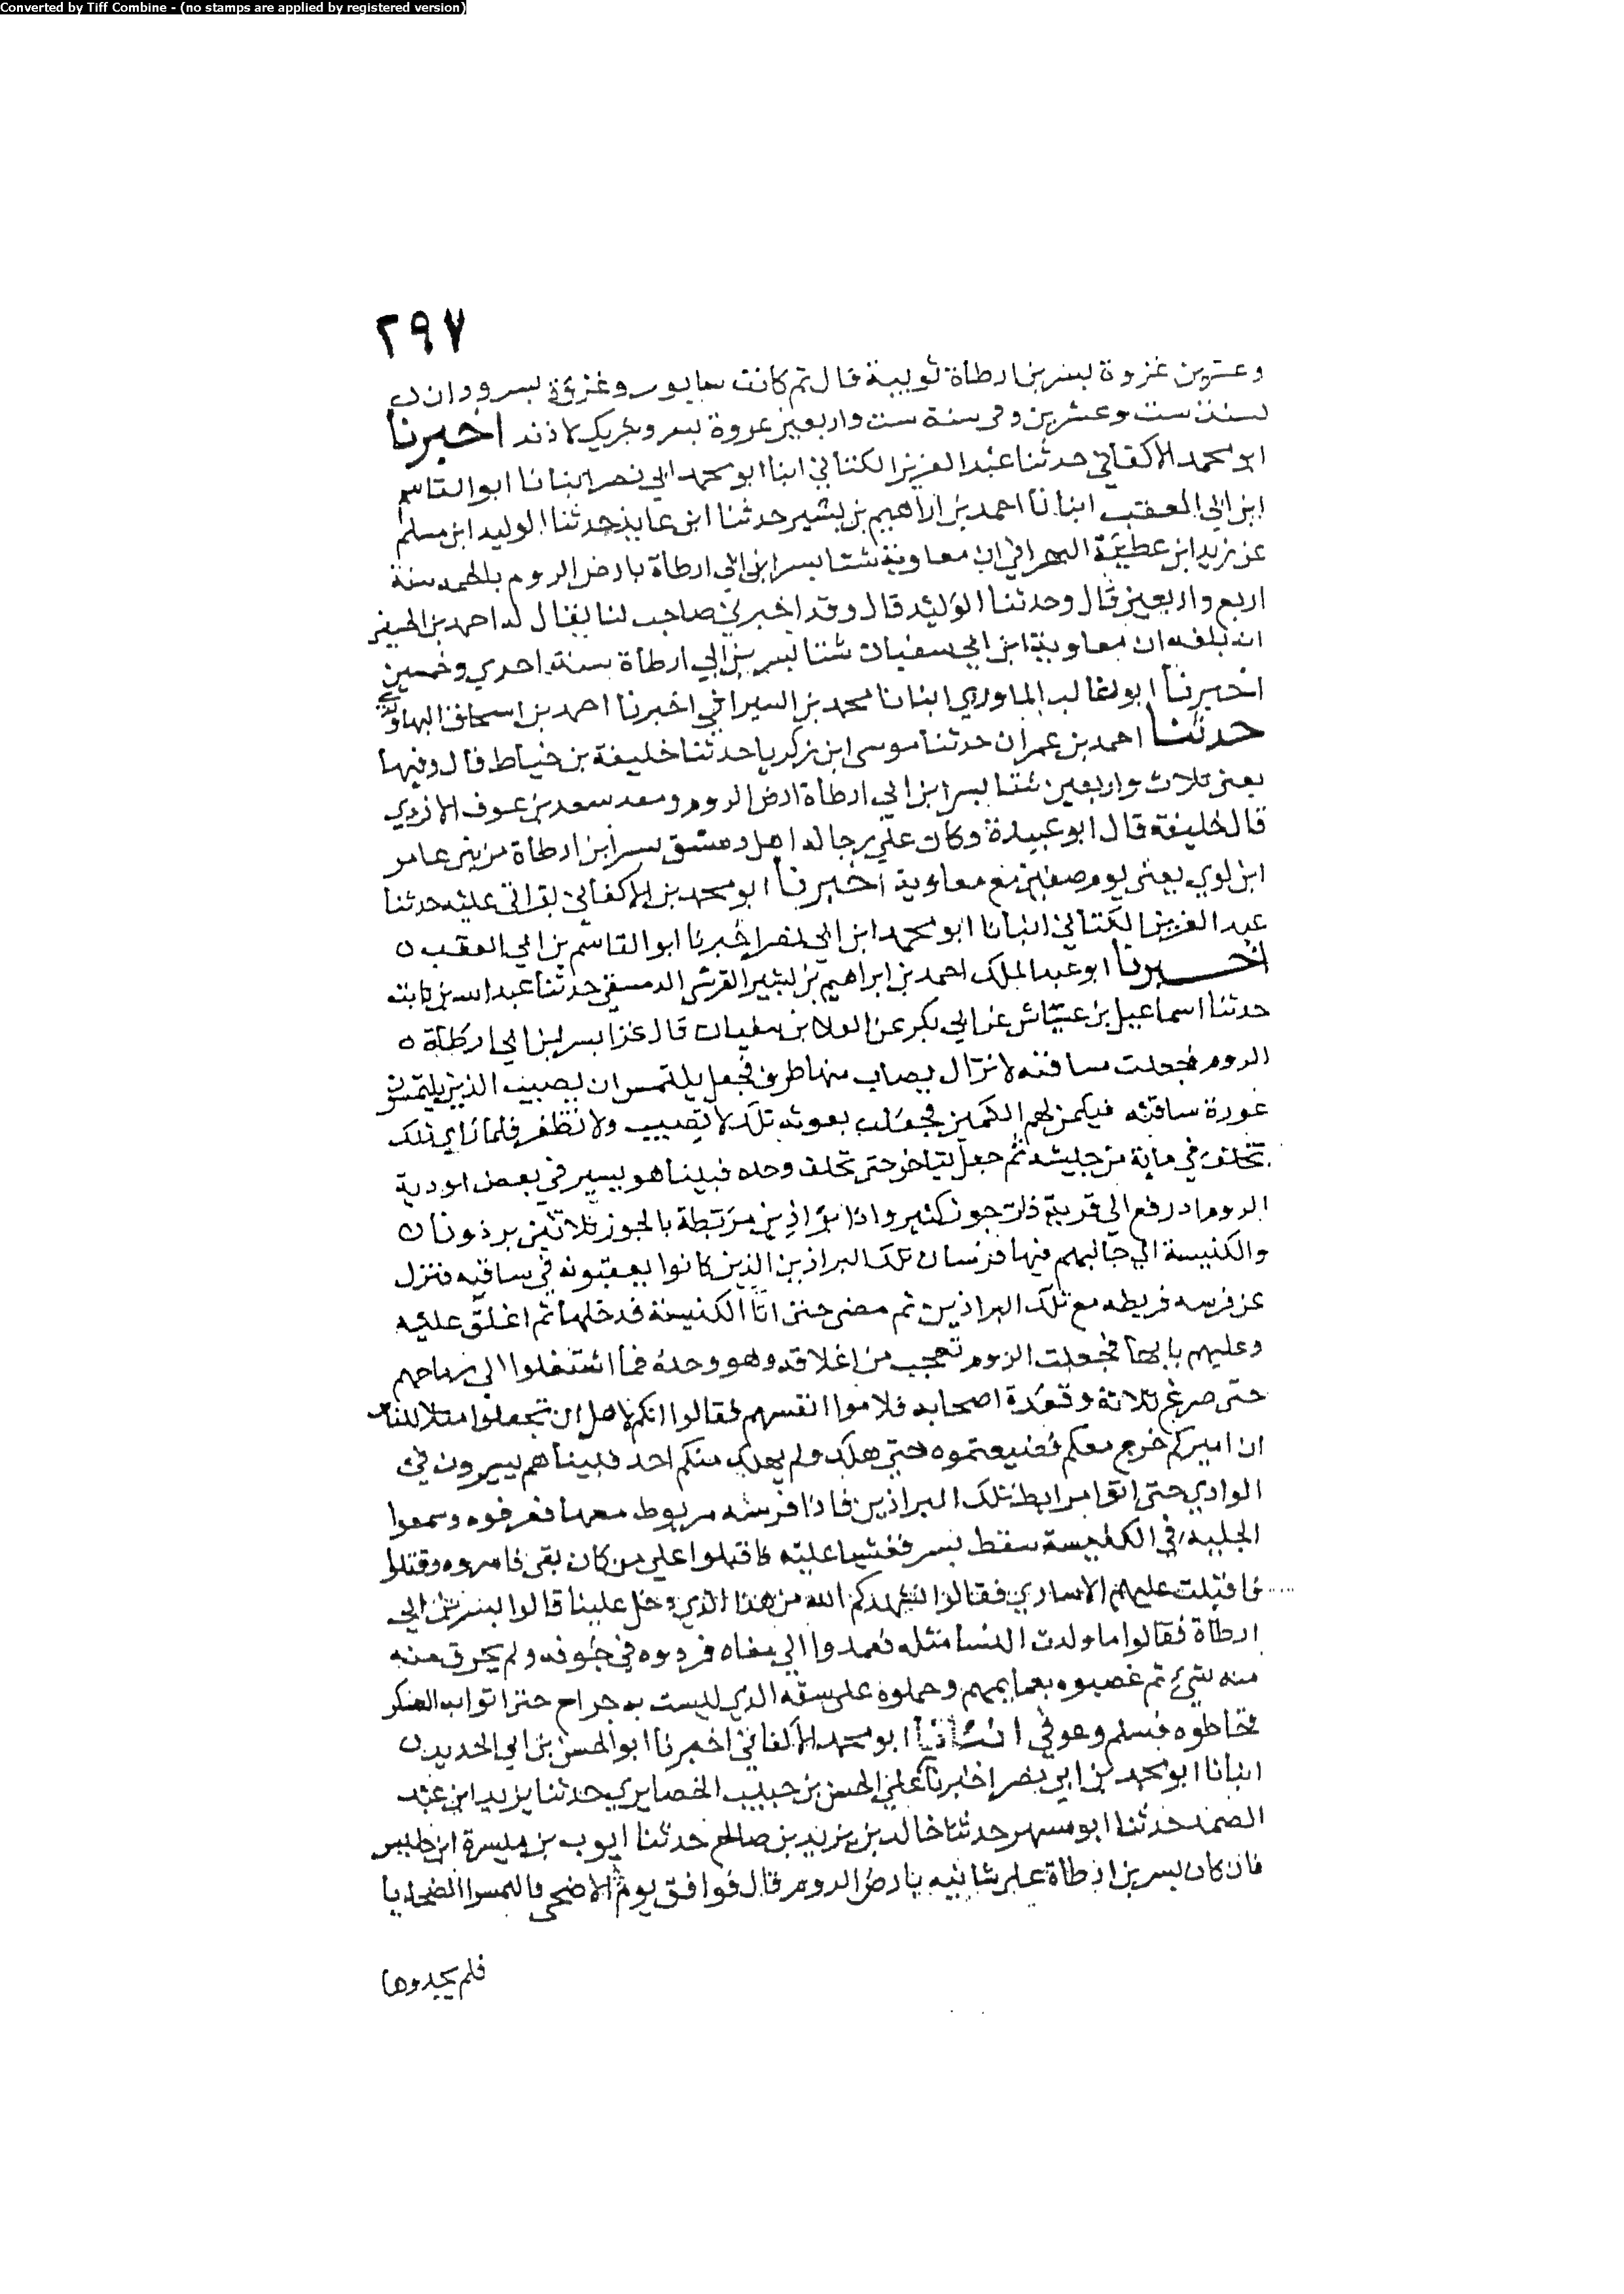 Converted by Tiff Combine - (no stamps are applied by registered version)
٢٩٧
وعشرين غزوة بسر بن ارطاة لوبية قال ثم كانت سابور وغزوة بسر ودان
لسنة ست وعشرين وفي سنة ست واربعين غزوة بسر وشريك لاذند اخبرنا
ابو محمد الاكفاني حدثنا عبد العزيز الكتاني انبا ابو محمد ابي نصر انبانا ابو القاسم
ابن ابي العقب انبانا احمد بن ابراهيم بن بشير حدثنا ابن عايذ حدثنا الوليد ابن مسلم
عن زيد ابن عطية البحراني ان معاوية شتا بسر ابن ابي ارطاة بارض الروم سنة
اربع واربعين قال وحدثنا الوليد قال وقد اخبرني صاحب لنا يقال له احمد بن
انه بلغه ان معاوية ابن ابي سفيان شتا بسر بن ابي ارطاة سنة احدي وخمسين
اخبرنا ابو غالب الماوردي انبانا محمد بن السيرافي اخبرنا احمد بن اسحاق النهاوندي
حدثنا احمد بن عمران حدثنا موسى ابن زكريا حدثنا خليفة بن خياط قال وفيها
يعني ثلاث واربعين شتا بسر ابن ابي ارطاة ارض الروم ومعه سعد بن عوف الازدي
قال خليفة قال ابو عبيدة وكان علي رجالة اهل دمشق بسر ابن ارطاة من بني عامر
ابن لوي يعني يوم صفين مع معاوية اخبرنا ابو محمد بن الاكفاني بقراتي عليه حدثنا
عبد العزيز الكتاني انبانا ابو محمد ابن ابي نصر اخبرنا ابو القاسم بن ابي العقب ه
اخبرنا ابو عبد الملك احمد بن ابراهيم بن بشير القرشي الدمشقي حدثنا عبد الله بن
حدثنا اسماعيل بن عياش عن ابي بكر عن العلا بن سفيان قال غزا بسر ابن ابي ارطاة ه
الروم فجعلت ساقته لا تزال يصاب منها طرف فجعل يلتمس ان يصيب الذين يلتمسون
عورة ساقته فيكمن لهم الكمين فجعلت بعوثه تلك لا تصيب ولا تظفر فلما راي ذلك
تخلف في ماية من جيشه ثم جعل يتاخر حتى تخلف وحده فبينا هو يسير في بعض اودية
الروم اذ رفع الي قرية ذات جوز كثير واذا براذين مرتبطة بالجوز ثلاثين برذونا
والكنيسة الي جانبهم فيها فرسان تلك البراذين الذين كانوا يعقبونه في ساقته فنزل
عن فرسه فربطه مع تلك البراذين ثم مضى حتى اتا الكنيسة فدخلها ثم اغلق عليه
وعليهم بابها فجعلت الروم تعجب من اغلاقه وهو وحده فما استقلوا الي رماحهم
حتى صرع ثلاثة وفقده اصحابه فلاموا انفسهم فقالوا انكم لاهل ان تجعلوا مثلا للناس
ان اميركم خرج معكم فضيعتموه حتى هلك ولم يهلك منكم احد فبينا هم يسيرون في
الوادي حتى اتوا مرابط تلك البراذين فاذا فرسه مربوط معها فعرفوه وسمعوا
الجلبة في الكنيسة سقط بسر فغشيا عليه فاقبلوا علي من كان بقى فاسروه وقتلوا
فاقبلت عليهم الاساري فقالوا ننشدكم الله من هذا الذي دخل علينا قالوا بسر بن ابي
ارطاة فقالوا ما ولدت النسا مثله فعمدوا الي معاه فردوه في جوفه ولم يخرق منه
منه شيء ثم عصبوه بعمايمهم وحملوه على شقه الذي ليست به جراح حتى اتوا به العسكر
فخاطوه فسلم وعوفي انبانا ابو محمد الاكفاني اخبرنا ابو الحسن بن ابي الحديد
انبانا ابو محمد بن ابي نصر اخبرنا علي الحسن بن حبيب الحصايري حدثنا يزيد ابن عبد
الصمد حدثنا ابو مسهر حدثنا خالد بن يزيد بن صالح حدثنا ايوب بن ميسرة ابن حلبس
قال كان بسر بن ارطاة على شاتية بارض الروم قال فوافق يوم الاضحى فالتمسوا الضحايا
فلم يجدوها